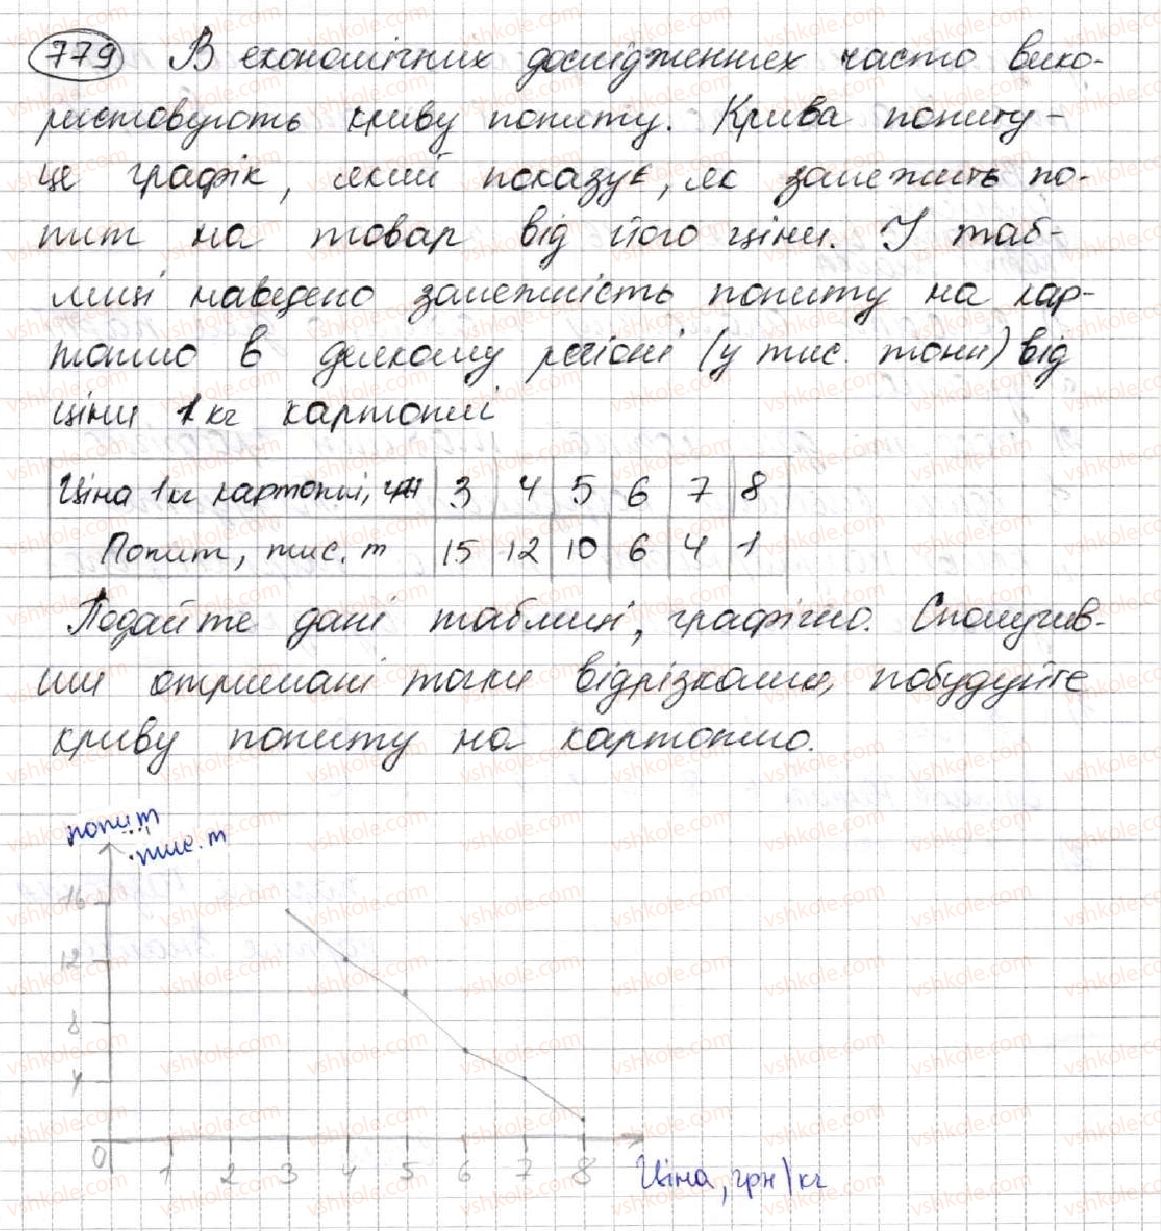 779 В економічних дослідженнях часто вико-
ристовують криву попиту. Крива попиту -
це графік, який показує, як залежить по-
пит на товар від його ціни. У таб-
лиці наведено залежність попиту на кар-
топлю в деякому регіоні (у тис. тонн) від
ціни 1 кг картоплі
Ціна 1 кг картоплі, грн 3 4 5 6 7 8
Попит, тис. т 15 12 10 6 4 1
Подайте дані таблиці, графічно. Сполучив-
ши отримані точки відрізками, побудуйте
криву попиту на картоплю.
попит
тис. т
16
12
8
4
0 1 2 3 4 5 6 7 8
Ціна, грн\кг